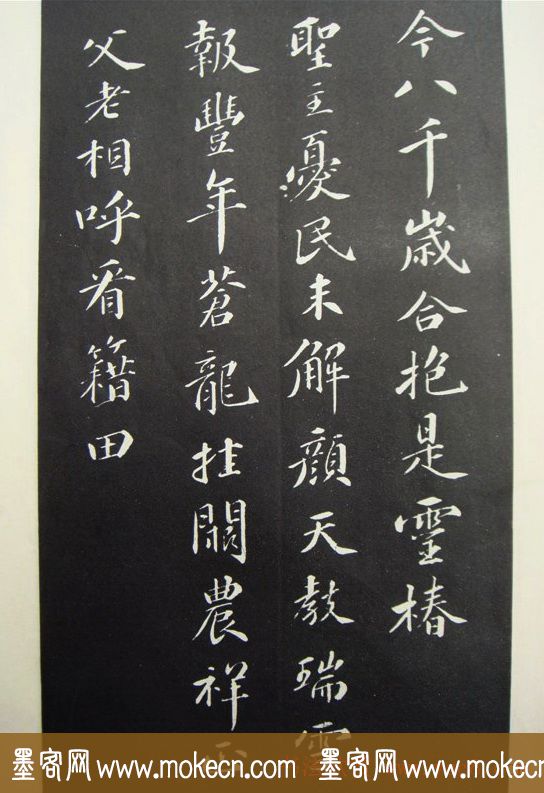 今八千歳合抱是靈椿
聖主憂民未解顔天教瑞雪
報豐年蒼龍挂闕農祥
父老相呼看籍田
墨客网 www.mokecn.com 墨客网 www.mokecn.com